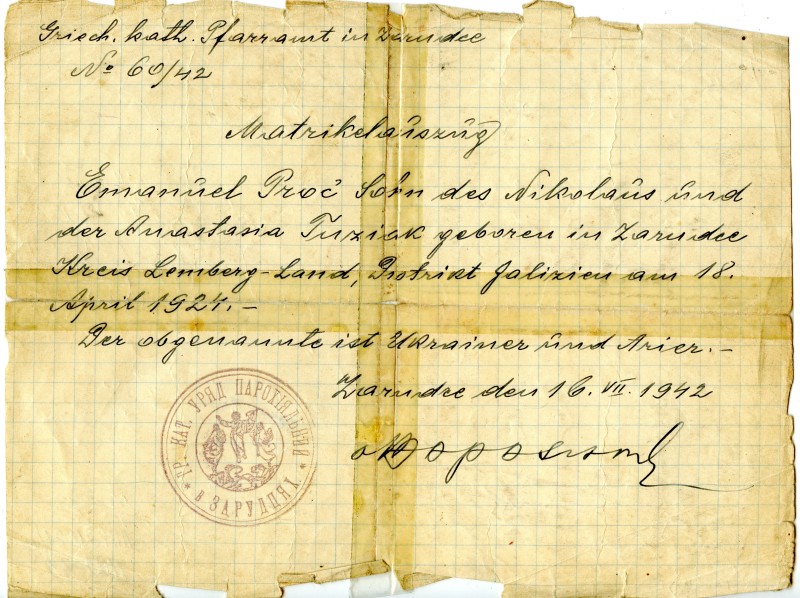 Griech. kath. Pfarramt in Zarudce
No 60/42
Matrikelauszug
Emanuel Proć Sohn des Nikolaus und
der Anastasia Tuziak geboren in Zarudce
Kreis Lemberg-Land, Distrikt Galizien am 18.
April 1924.-
Der obgenannte ist Ukrainer und Arier.-
Zarudce den 16. VII. 1942
ГР. КАТ. УРЯД ПАРОХІЯЛЬНИЙ
в ЗАРУДЦЯХ